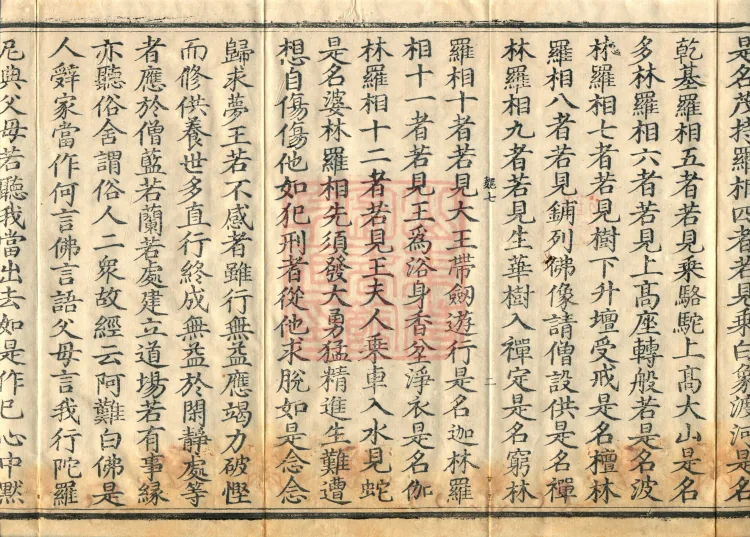 是名茂持羅相四者若見乘白象渡河是名
乾基羅相五者若見乘駱駝上高大山是名
多林羅相六者若見上高座轉般若是名波
林羅相七者若見樹下升壇受戒是名檀林
羅相八者若見鋪列佛像請僧設供是名禪
林羅相九者若見生華樹入禪定是名窮林
覲七
二
羅相十者若見大王帶劒遊行是名迦林羅
相十一者若見王爲浴身香坌淨衣是名伽
林羅相十二者若見王夫人乘車入水見蛇
是名婆林羅相先須發大勇猛精進生難遭
想自傷傷他如犯刑者從他求脫如是念念
歸求夢王若不感者雖行無益應竭力破慳
而修供養世多直行終成無益於閑靜處等
者應於僧藍若蘭若處建立道場若有事緣
亦聽俗舍謂俗人二衆故經云阿難白佛是
人辭家當作何言佛言語父母言我行陀羅
尼與父母若聽我當出去如是作已心中默